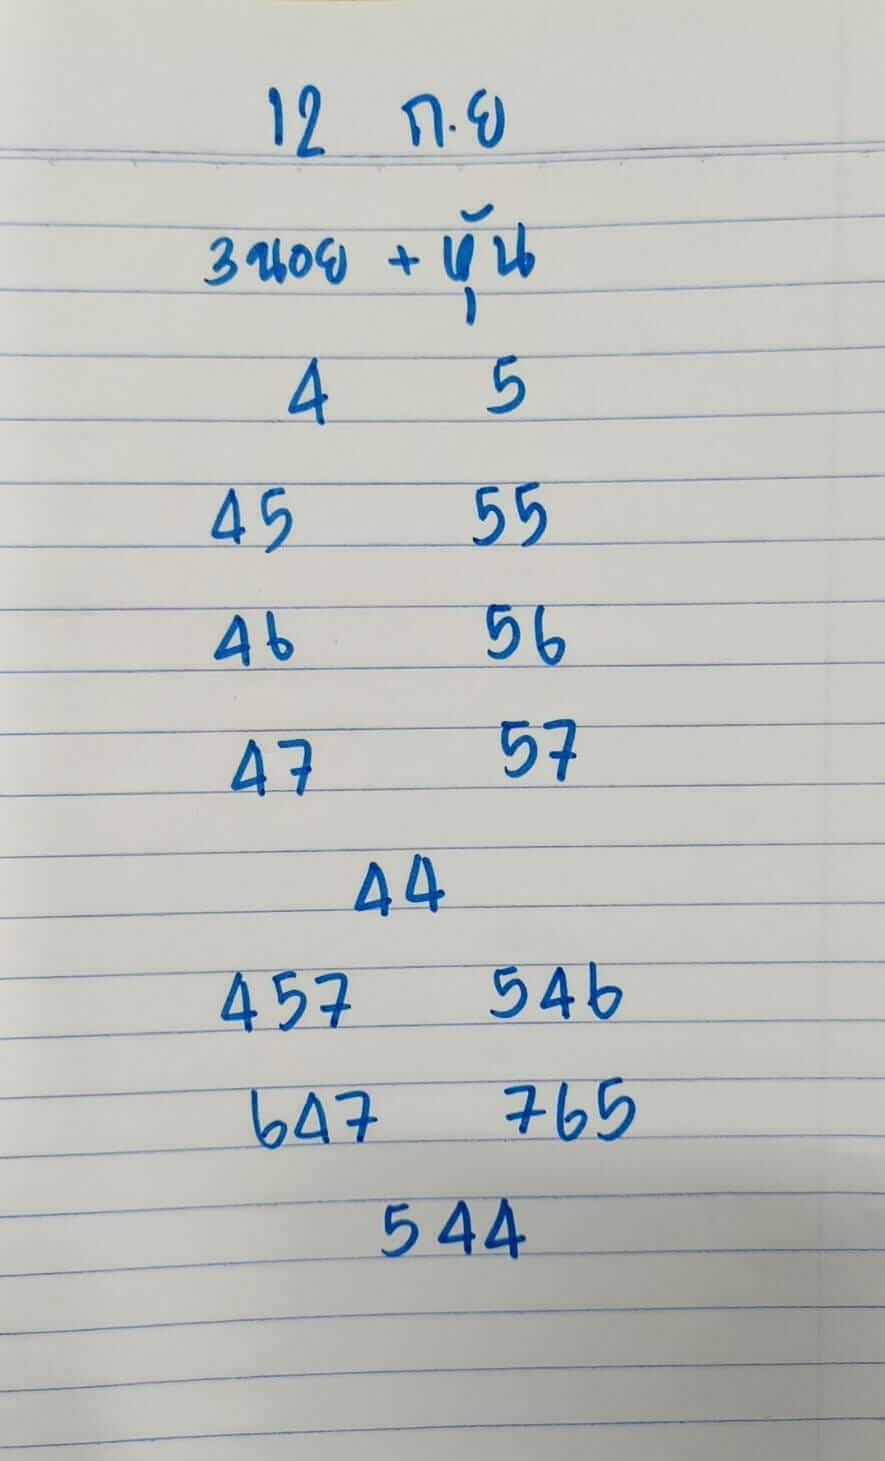 12 ก.ย
3นอย + หุ้น
4 5
45 55
46 56
47 57
44
457 546
647 765
544